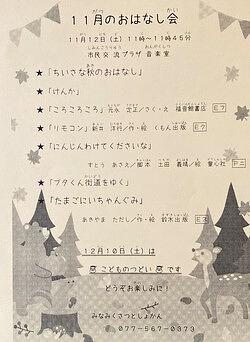 11月のおはなし会
11月12日(土) 11時~11時45分
市民交流プラザ 音楽室
★「ちいさな秋のおはなし」
★「けんか」
★「ころころころ」元永 定正/さく・え 福音館書店
★「リモコン」新井 洋行/作・絵 くもん出版
★「にんじんわけてくださいな」
すとう あさえ/脚本 土田 義晴/絵 童心社
★「ブタくん街道をゆく」
★「たまごにいちゃんぐみ」
あきやま ただし/作・絵 鈴木出版
12月10日(土)は
こどものつどい です
どうぞお楽しみに!
みなみくさつとしょかん
077-567-0373